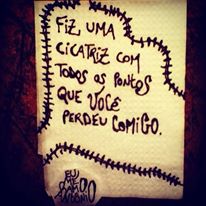 FiZ UMA
CiCATRiZ COM
TODOS OS PONTOS
QUE VOCÊ
PERDEU COMiGO.
EU
ME
CHAMO
ANTÔNIO